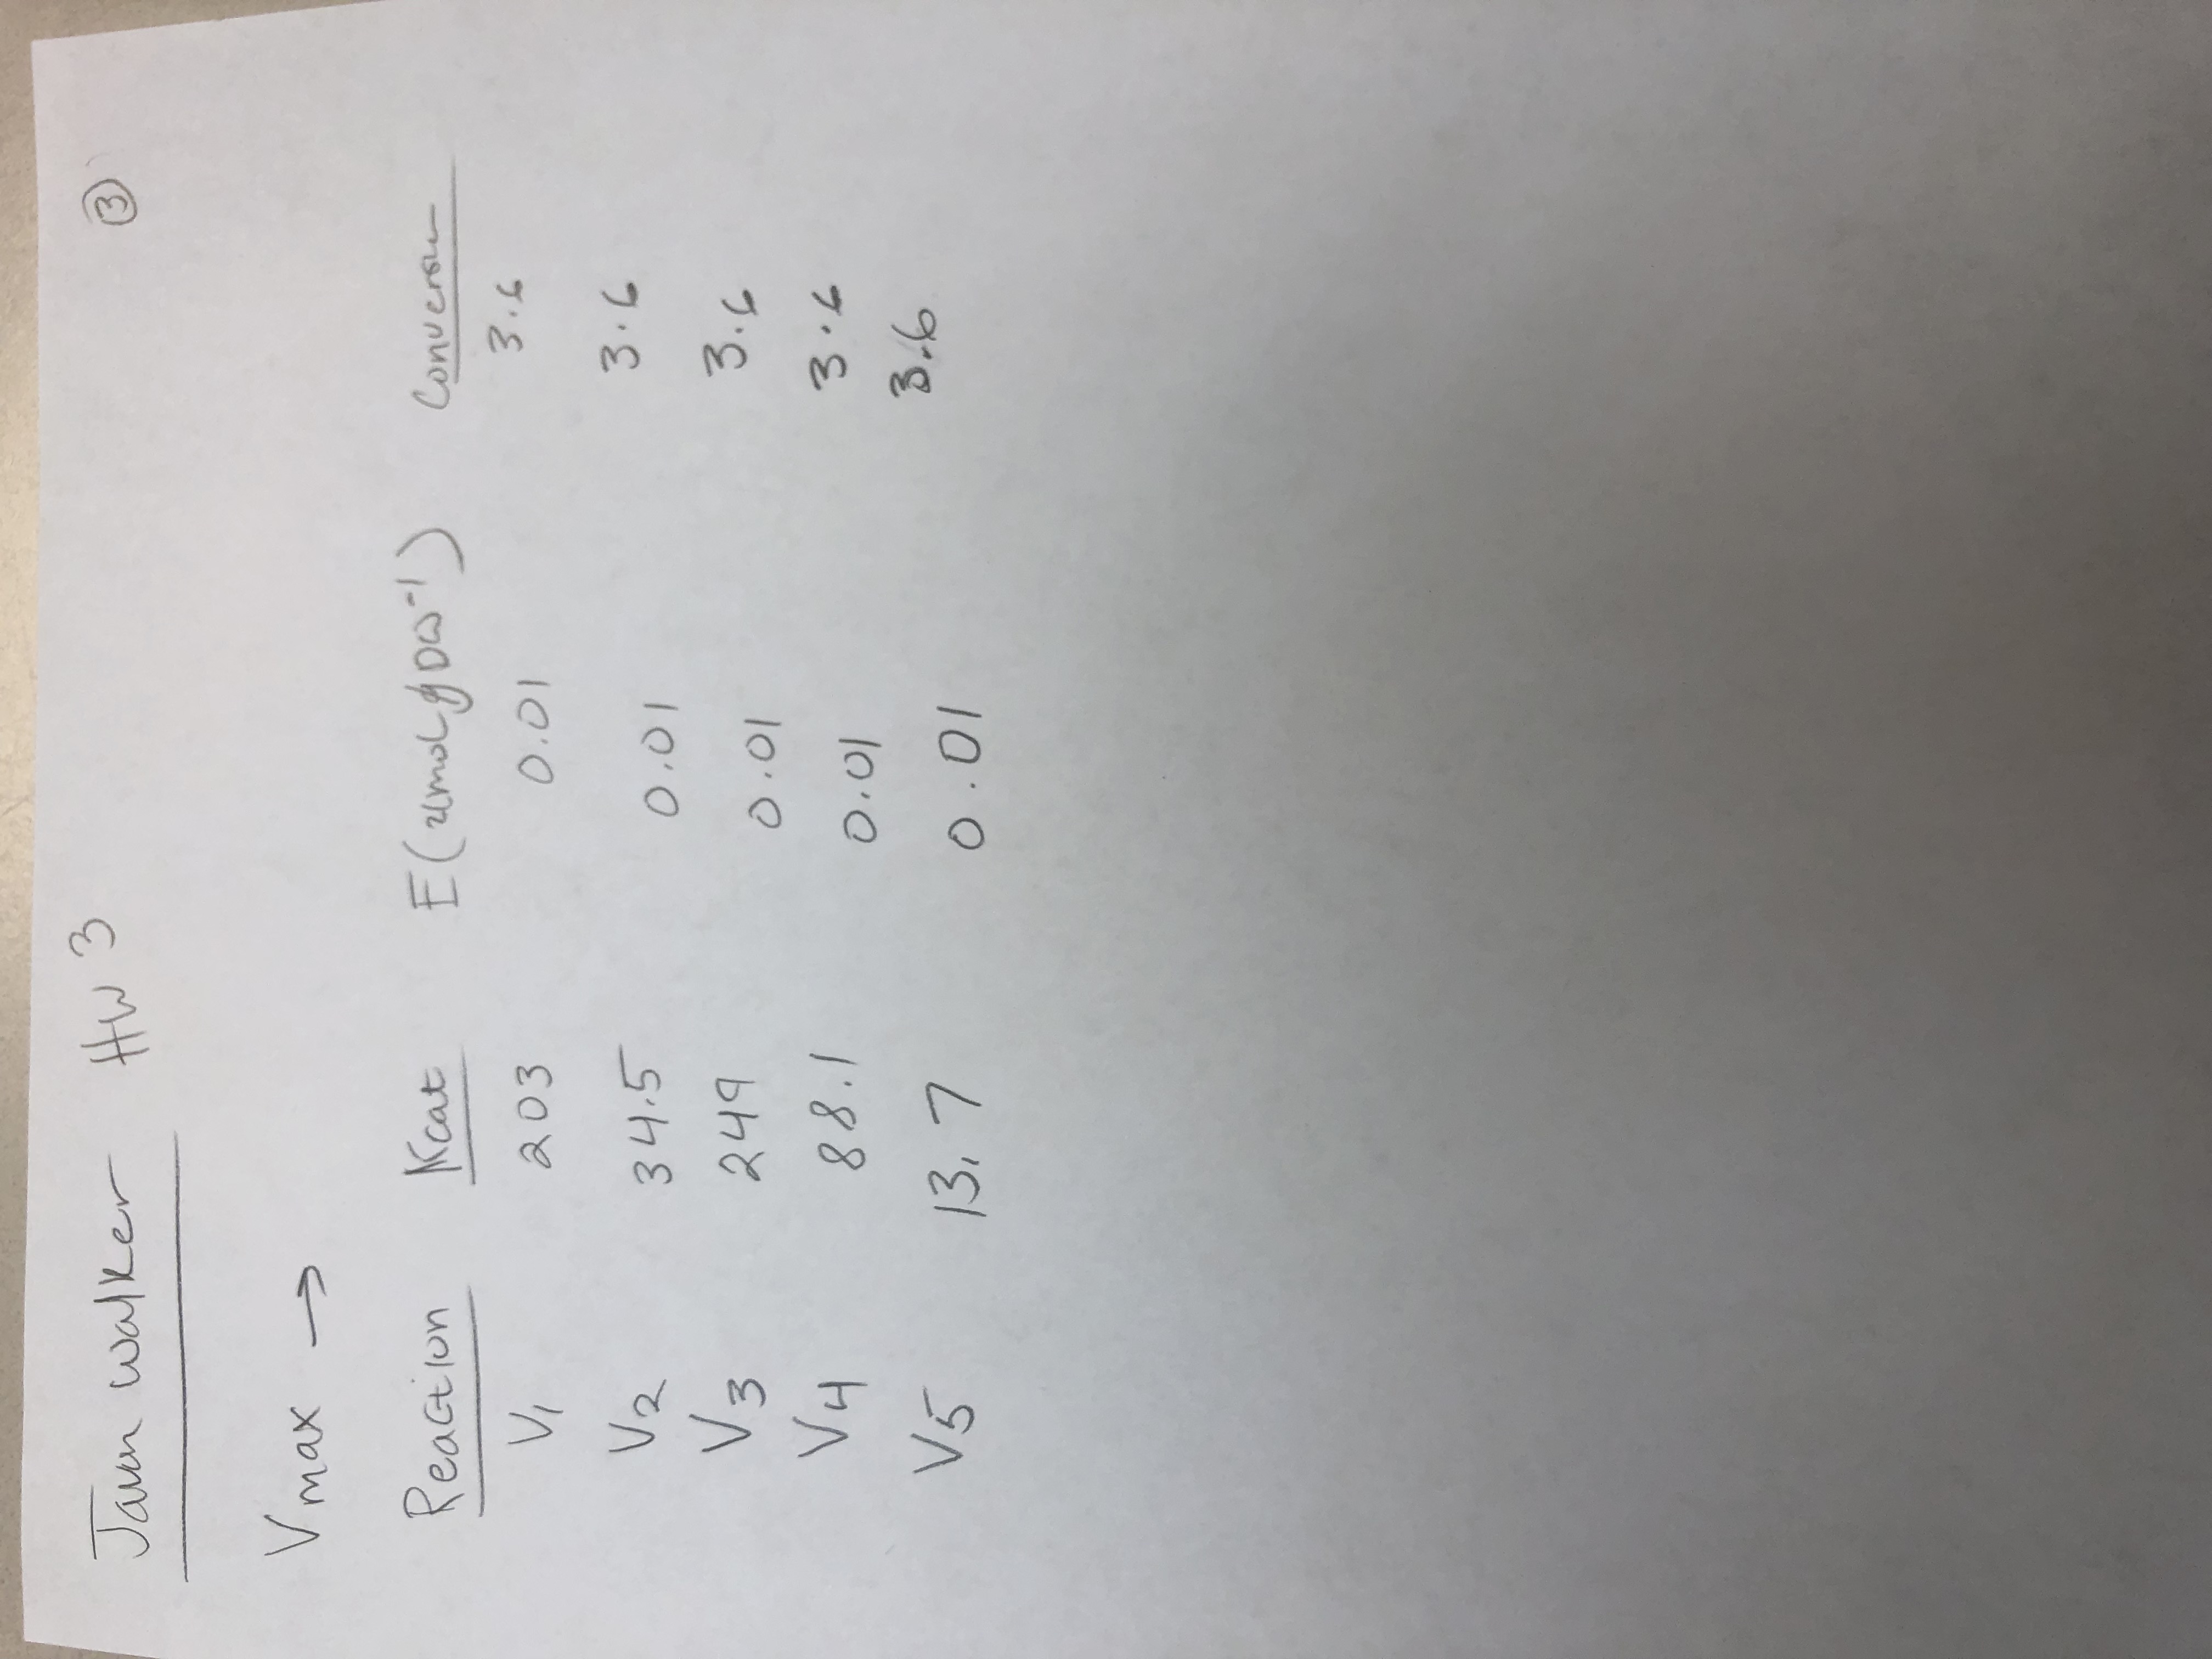 Javon Walker HW 3 3
Vmax →
Reaction Kcat E(umol gDW⁻¹) Conversion
V1 203 0.01 3.6
V2 34.5 0.01 3.6
V3 249 0.01 3.6
V4 88.1 0.01 3.6
V5 13.7 0.01 3.6